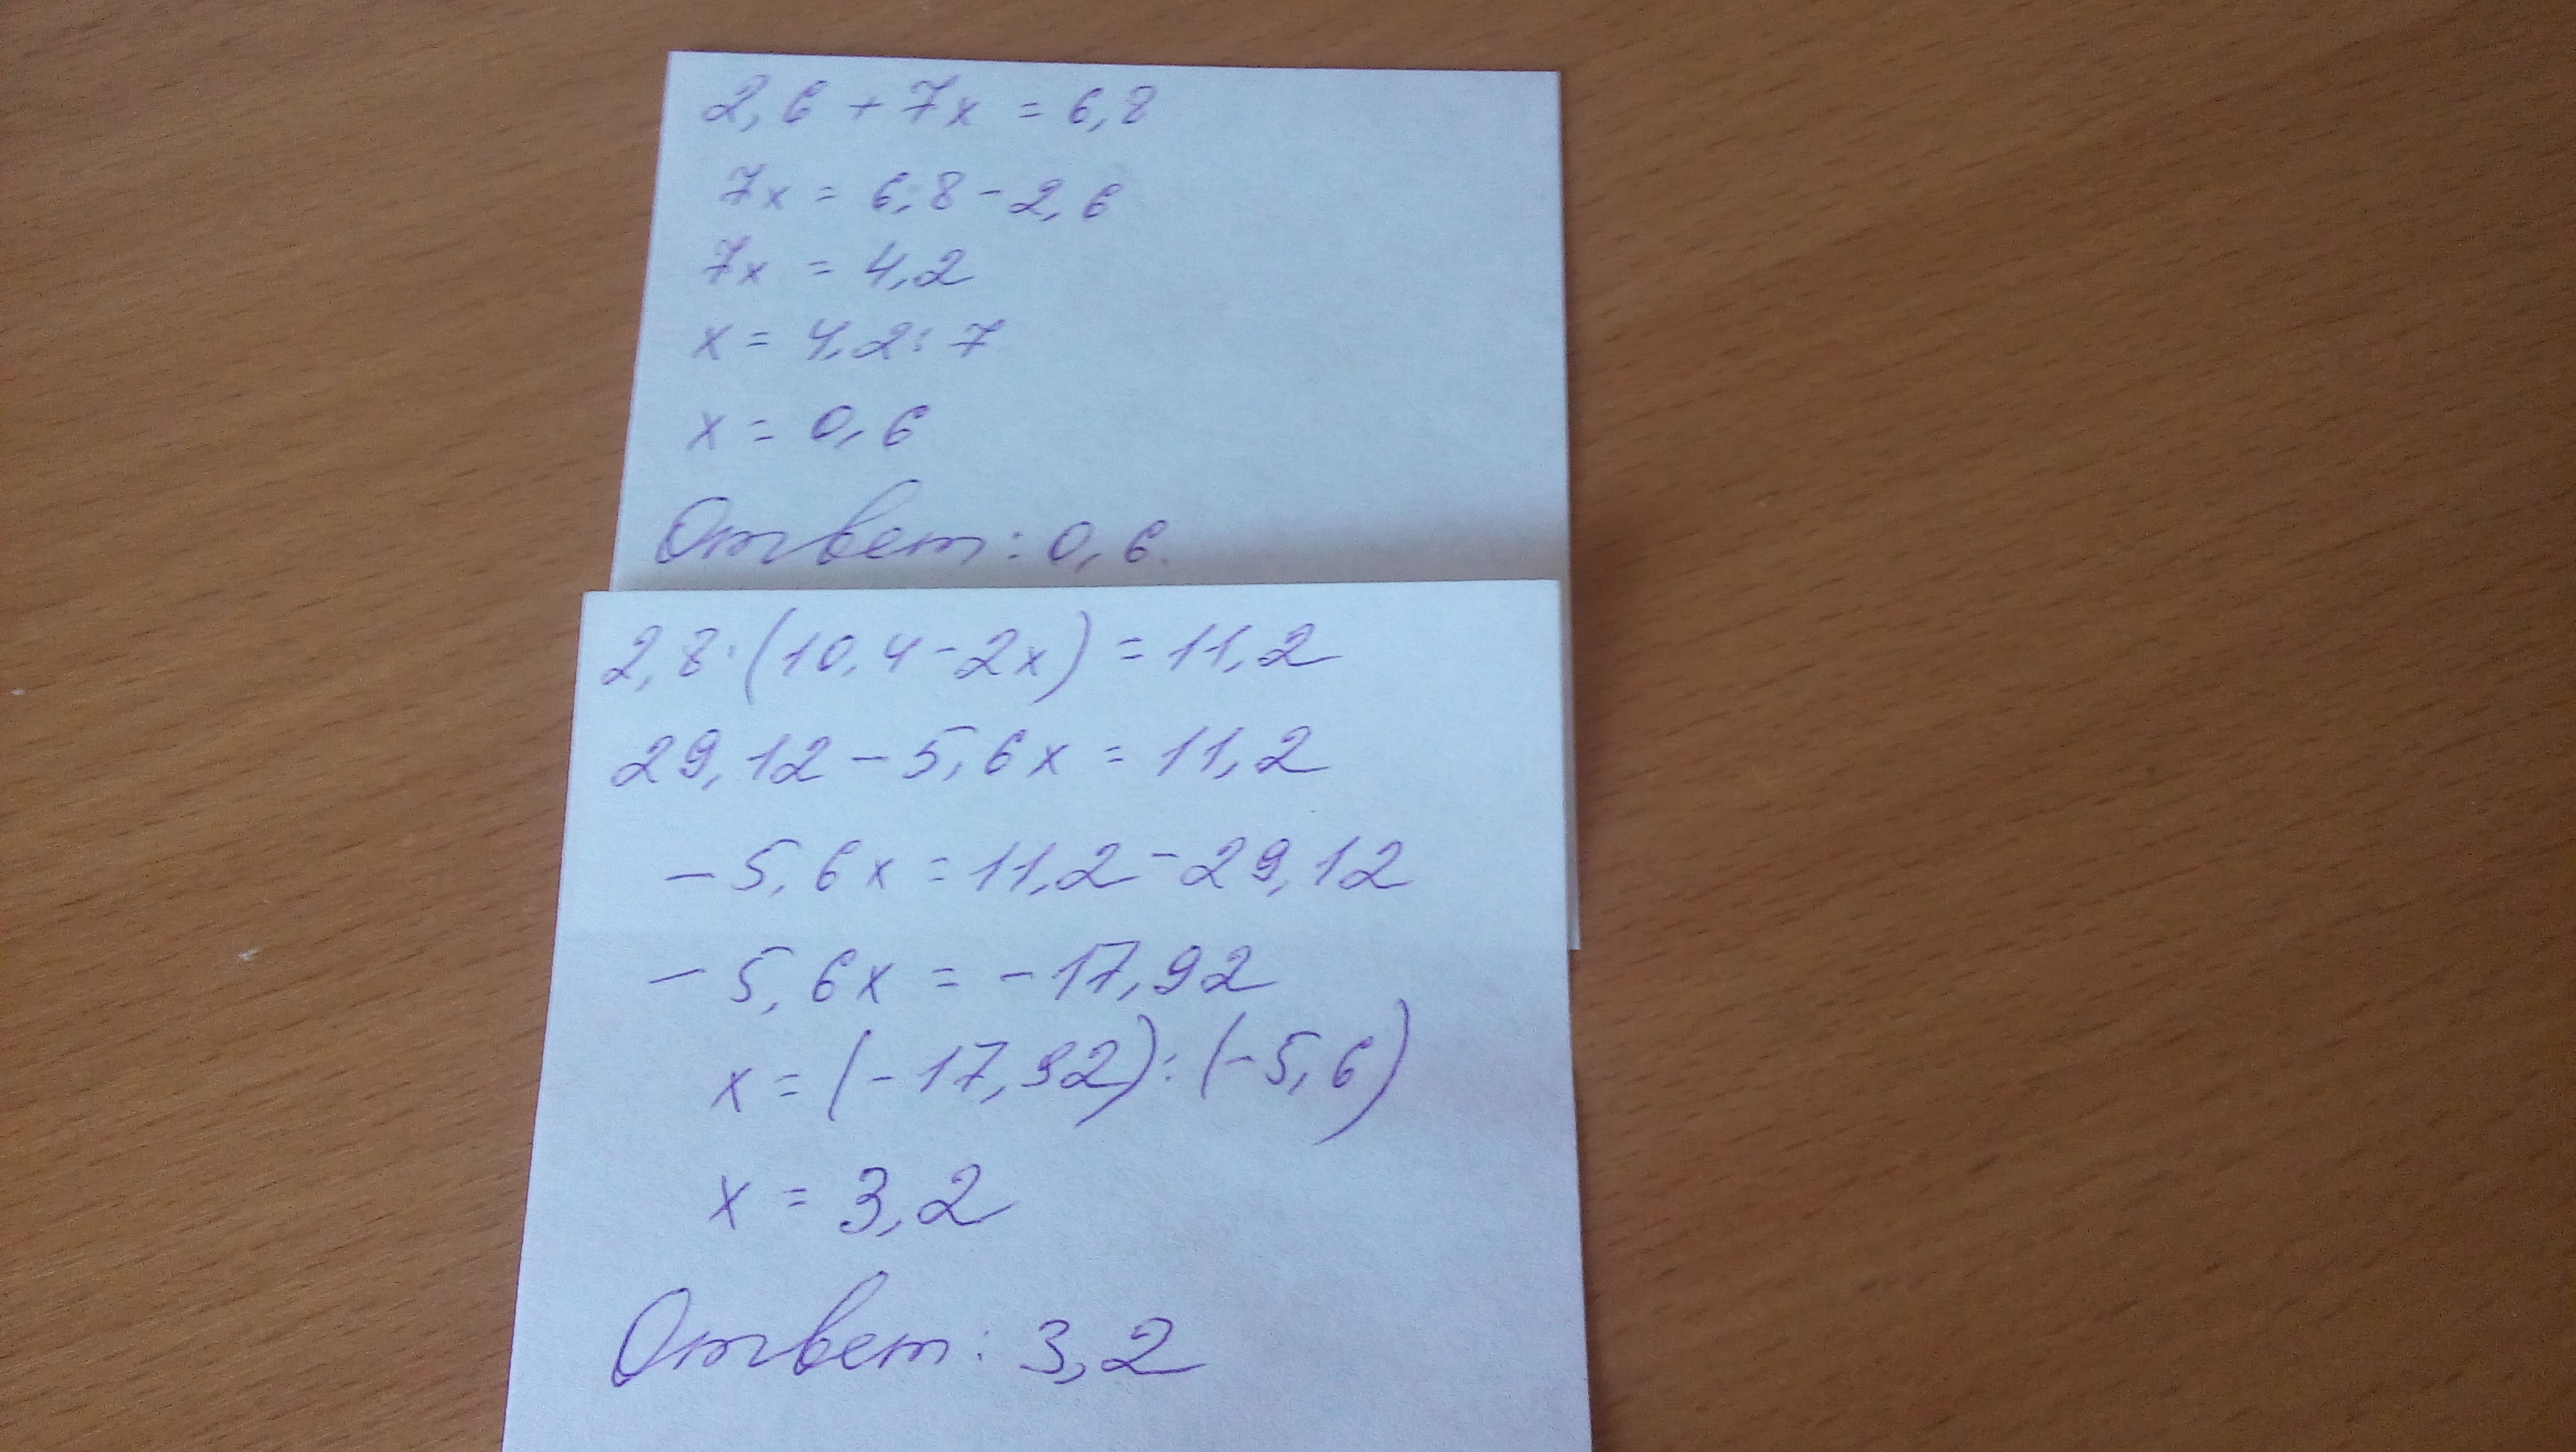 2,6 + 7x = 6,8
7x = 6,8 - 2,6
7x = 4,2
x = 4,2 : 7
x = 0,6
Ответ: 0,6.
2,8 · (10,4 - 2x) = 11,2
29,12 - 5,6x = 11,2
- 5,6x = 11,2 - 29,12
- 5,6x = - 17,92
x = (- 17,92) : (- 5,6)
x = 3,2
Ответ: 3,2